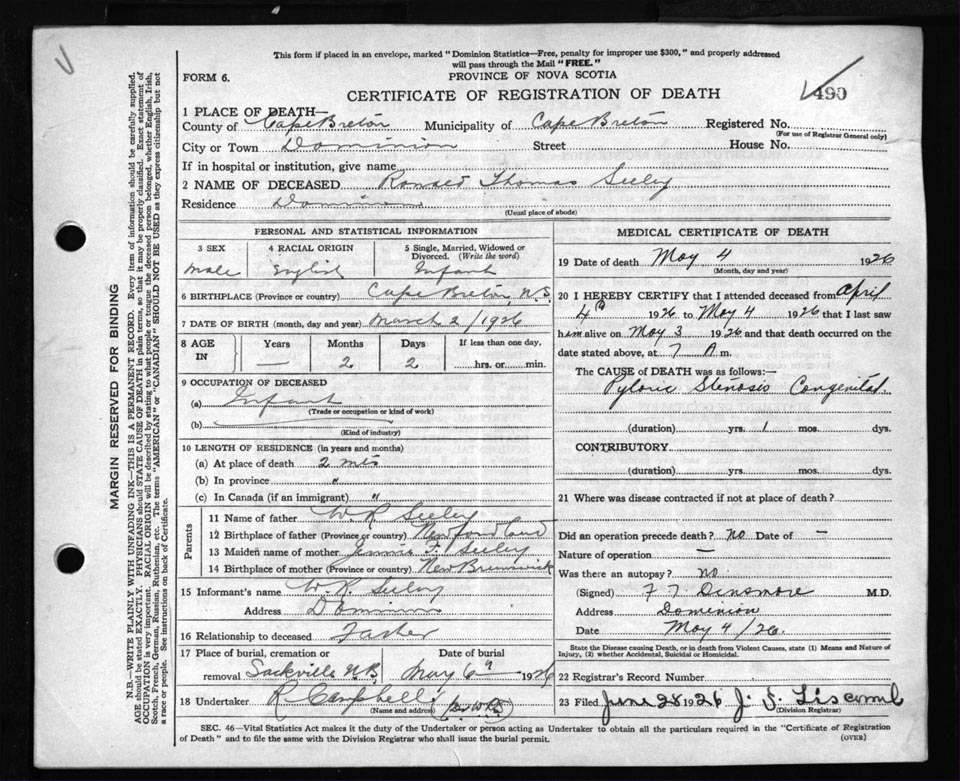 This form if placed in an envelope, marked "Dominion Statistics—Free, penalty for improper use $300," and properly addressed
will pass through the Mail "FREE."
FORM 6.
PROVINCE OF NOVA SCOTIA
CERTIFICATE OF REGISTRATION OF DEATH
490
1 PLACE OF DEATH—
County of Cape Breton Municipality of Cape Breton Registered No.
(For use of Registrar General only)
City or Town Dominion Street House No.
If in hospital or institution, give name
2 NAME OF DECEASED Ronald Thomas Seeley
Residence Dominion
(Usual place of abode)
PERSONAL AND STATISTICAL INFORMATION
3 SEX 4 RACIAL ORIGIN 5 Single, Married, Widowed or
Divorced. (Write the word)
male English Infant
6 BIRTHPLACE (Province or country) Cape Breton, N.S.
7 DATE OF BIRTH (month, day and year) March 2/1926
8 AGE IN Years Months Days If less than one day,
— 2 2 hrs. or min.
9 OCCUPATION OF DECEASED
(a) Infant
(Trade or occupation or kind of work)
(b)
(Kind of industry)
10 LENGTH OF RESIDENCE (in years and months)
(a) At place of death 2 mts
(b) In province "
(c) In Canada (if an immigrant) "
Parents
11 Name of father W R Seeley
12 Birthplace of father (Province or country) Newfoundland
13 Maiden name of mother F. Seeley
14 Birthplace of mother (Province or country) New Brunswick
15 Informant's name W. R. Seeley
Address Dominion
16 Relationship to deceased Father
17 Place of burial, cremation or Date of burial
removal Sackville N B May 6th 1926
18 Undertaker R Campbell
(Name and address)
MEDICAL CERTIFICATE OF DEATH
19 Date of death May 4 1926
(Month, day and year)
20 I HEREBY CERTIFY that I attended deceased from April
4th 1926 to May 4 1926 that I last saw
him alive on May 3 1926 and that death occurred on the
date stated above, at 7 A m.
The CAUSE of DEATH was as follows:—
Pyloric Stenosis Congenital.
(duration) yrs. 1 mos. dys.
CONTRIBUTORY.
(duration) yrs. mos. dys.
21 Where was disease contracted if not at place of death?
Did an operation precede death? no Date of —
Nature of operation —
Was there an autopsy? no.
(Signed) F T Densmore M.D.
Address Dominion
Date May 4/26.
State the Disease causing Death, or in death from Violent Causes, state (1) Means and Nature of
Injury, (2) whether Accidental, Suicidal or Homicidal.
22 Registrar's Record Number
23 Filed June 28 1926 J. S. Liscomb
(Division Registrar)
SEC. 46—Vital Statistics Act makes it the duty of the Undertaker or person acting as Undertaker to obtain all the particulars required in the "Certificate of Registration
of Death" and to file the same with the Division Registrar who shall issue the burial permit.
(OVER)
MARGIN RESERVED FOR BINDING
N.B.—WRITE PLAINLY WITH UNFADING INK—THIS IS A PERMANENT RECORD. Every item of information should be carefully supplied.
AGE should be stated EXACTLY. PHYSICIANS should STATE CAUSE OF DEATH in plain terms, so that it may be properly classified. Exact statement of
OCCUPATION is very important. RACIAL ORIGIN will be described by stating to what people or tongue the deceased person belonged, whether English, Irish,
Scotch, French, German, Russian, Ruthenian, etc. The terms "AMERICAN" or "CANADIAN" SHOULD NOT BE USED as they express citizenship but not
a race or people. See instructions on back of Certificate.